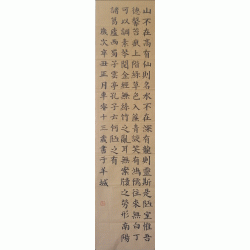 山不在高有仙則名水不在深有龍則靈斯是陋室惟吾
德馨苔痕上階綠草色入簾青談笑有鴻儒往來無白丁
可以調素琴閱金經無絲竹之亂耳無案牘之勞形南陽
諸葛廬西蜀子雲亭孔子云何陋之有
歲次辛丑正月車十三歲書于羊城